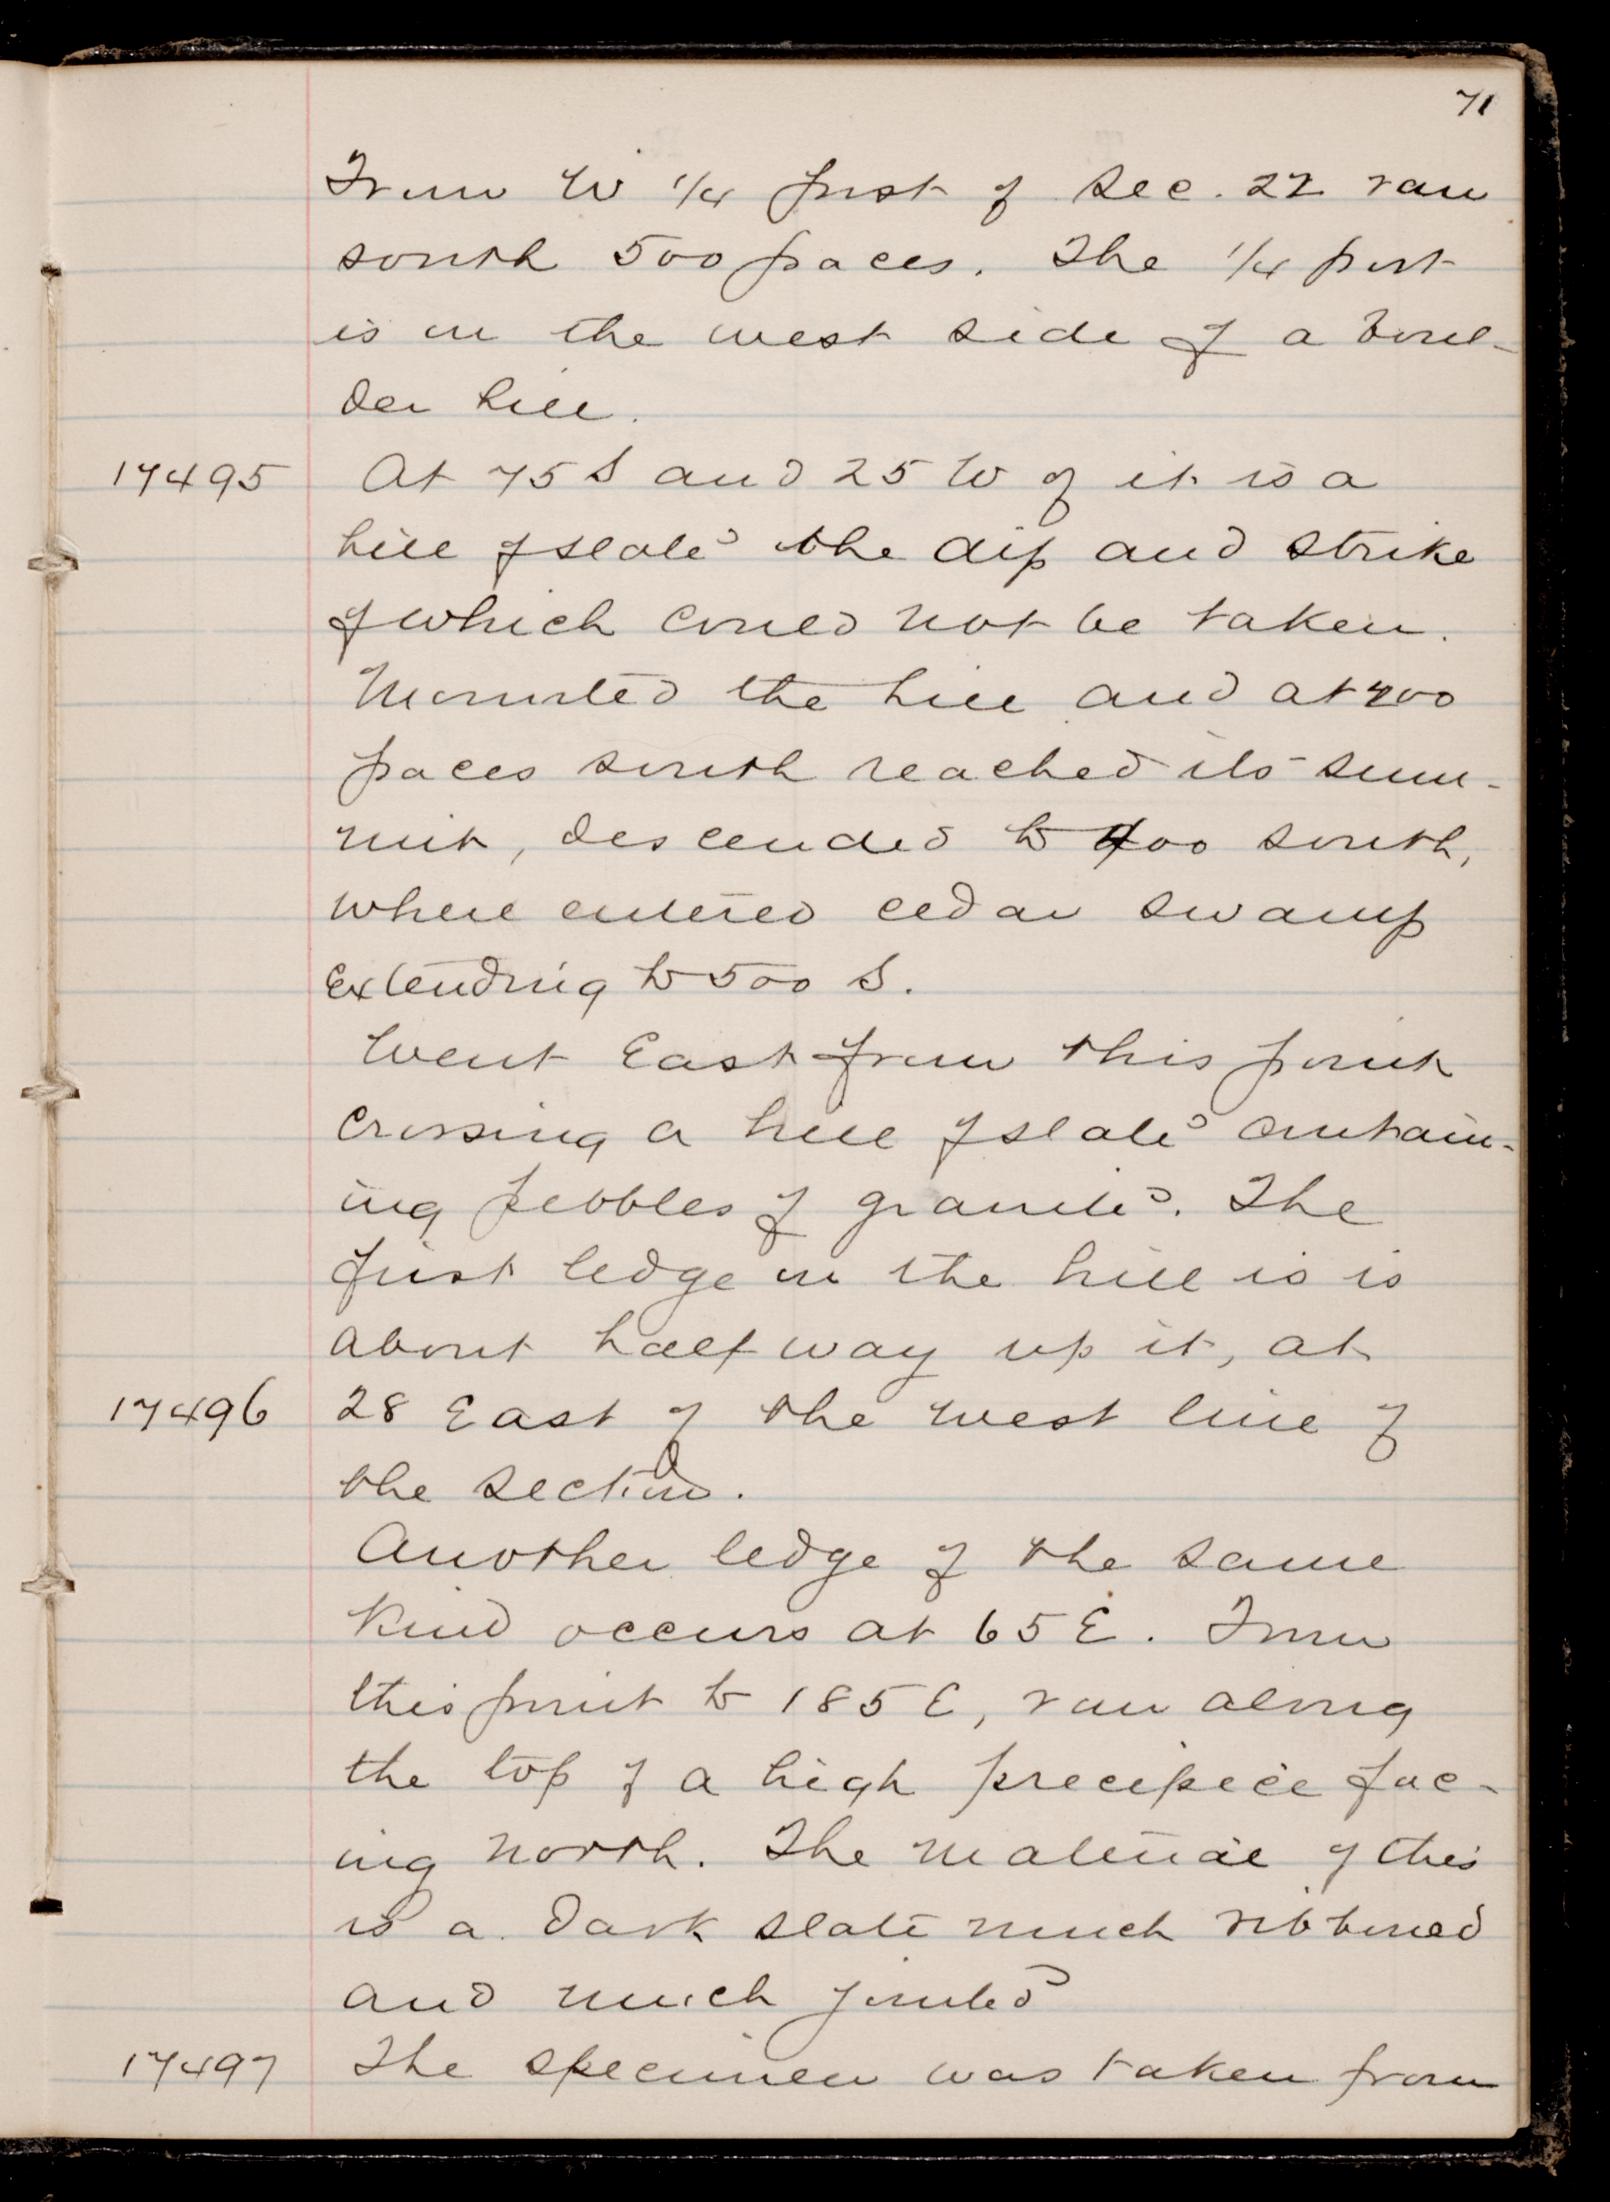 71
From W 1/4 post of Sec. 22 ran
south 500 paces. The 1/4 post
is on the west side of a boul-
der hill.
17495 At 75 S and 25 W of it is a
hill of slate the dip and strike
of which could not be taken.
Mounted the hill and at 200
paces south reached its sum-
mit, descended to 400 south,
where entered cedar swamp
extending to 500 S.
Went East from this point
crossing a hill of slate contain-
ing pebbles of granite. The
first ledge on the hill is is
about half way up it, at
17496 28 East of the west line of
the section.
Another ledge of the same
kind occurs at 65 E. From
this point to 185 E, ran along
the top of a high precipice fac-
ing north. The material of this
is a dark slate much ribboned
and much jointed
17497 The specimen was taken from